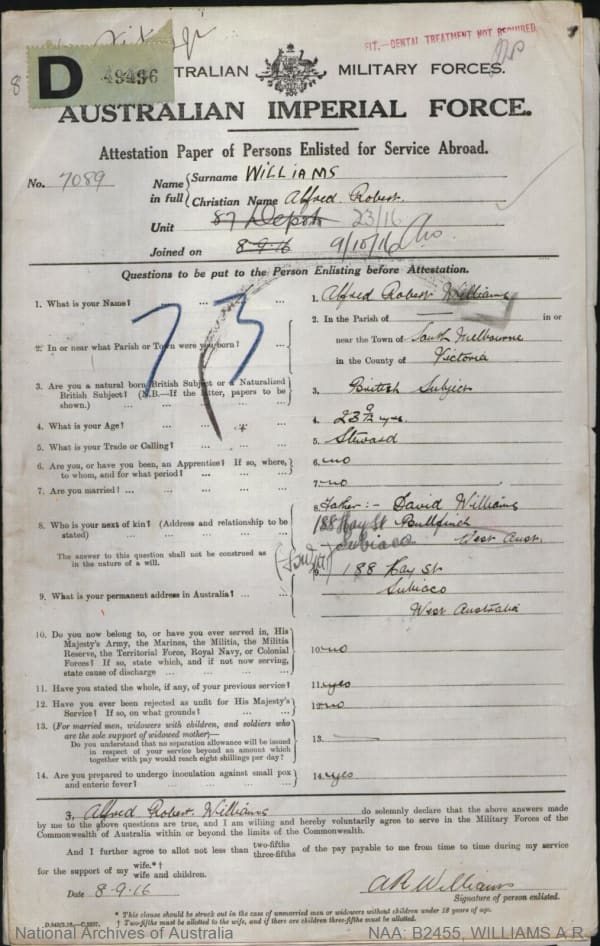 FIT.—DENTAL TREATMENT NOT REQUIRED
D 49496
AUSTRALIAN MILITARY FORCES.
AUSTRALIAN IMPERIAL FORCE.
Attestation Paper of Persons Enlisted for Service Abroad.
No. 7089 Name in full { Surname WILLIAMS
Christian Name Alfred Robert.
Unit 87 Depot 23/16
Joined on 8-9-16 9/10/16
Questions to be put to the Person Enlisting before Attestation.
73
1. What is your Name? ... ... ... 1. Alfred Robert Williams
2. In or near what Parish or Town were you born? ... 2. In the Parish of in or
near the Town of South Melbourne
in the County of Victoria
3. Are you a natural born British Subject or a Naturalized
British Subject? (N.B.—If the latter, papers to be
shown.) ... ... ... 3. British Subject
4. What is your Age? ... ... ... 4. 23 9/12 yrs.
5. What is your Trade or Calling? ... ... ... 5. Steward
6. Are you, or have you been, an Apprentice? If so, where,
to whom, and for what period? ... ... ... 6. no
7. Are you married? ... ... ... ... 7. no
8. Who is your next of kin? (Address and relationship to be
stated) ... ... ... ... 8. Father:- David Williams
188 Hay St Bullfinch
Subiaco West Aust.
The answer to this question shall not be construed as
in the nature of a will.
9. What is your permanent address in Australia? ... ... 9. 188 Hay St
Subiaco
West Australia
10. Do you now belong to, or have you ever served in, His
Majesty's Army, the Marines, the Militia, the Militia
Reserve, the Territorial Force, Royal Navy, or Colonial
Forces? If so, state which, and if not now serving,
state cause of discharge ... ... ... 10. no
11. Have you stated the whole, if any, of your previous service? 11. yes
12. Have you ever been rejected as unfit for His Majesty's
Service? If so, on what grounds? ... ... ... 12. no
13. (For married men, widowers with children, and soldiers who
are the sole support of widowed mother)—
Do you understand that no separation allowance will be issued
in respect of your service beyond an amount which
together with pay would reach eight shillings per day? 13.
14. Are you prepared to undergo inoculation against small pox
and enteric fever? ... ... ... ... 14. yes
I, Alfred Robert Williams do solemnly declare that the above answers made
by me to the above questions are true, and I am willing and hereby voluntarily agree to serve in the Military Forces of the
Commonwealth of Australia within or beyond the limits of the Commonwealth.
And I further agree to allot not less than two-fifths three-fifths of the pay payable to me from time to time during my service
for the support of my wife.*† wife and children.
Date 8-9-16 A R Williams
Signature of person enlisted.
* This clause should be struck out in the case of unmarried men or widowers without children under 18 years of age.
† Two-fifths must be allotted to the wife, and if there are children three-fifths must be allotted.
National Archives of Australia NAA: B2455, WILLIAMS A R